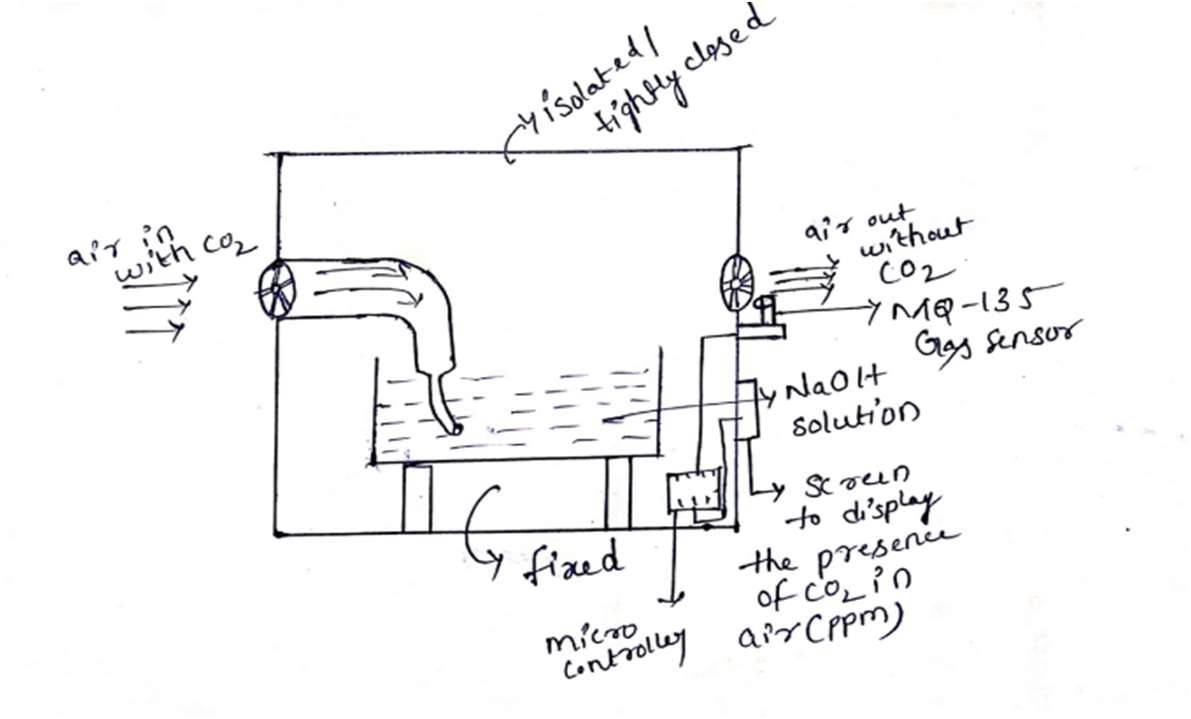 isolated/
tightly closed
air in
with CO2
air out
without
CO2
MQ-135
Gas sensor
NaOH
solution
Screen
to display
the presence
of CO2 in
air (ppm)
fixed
micro
controller